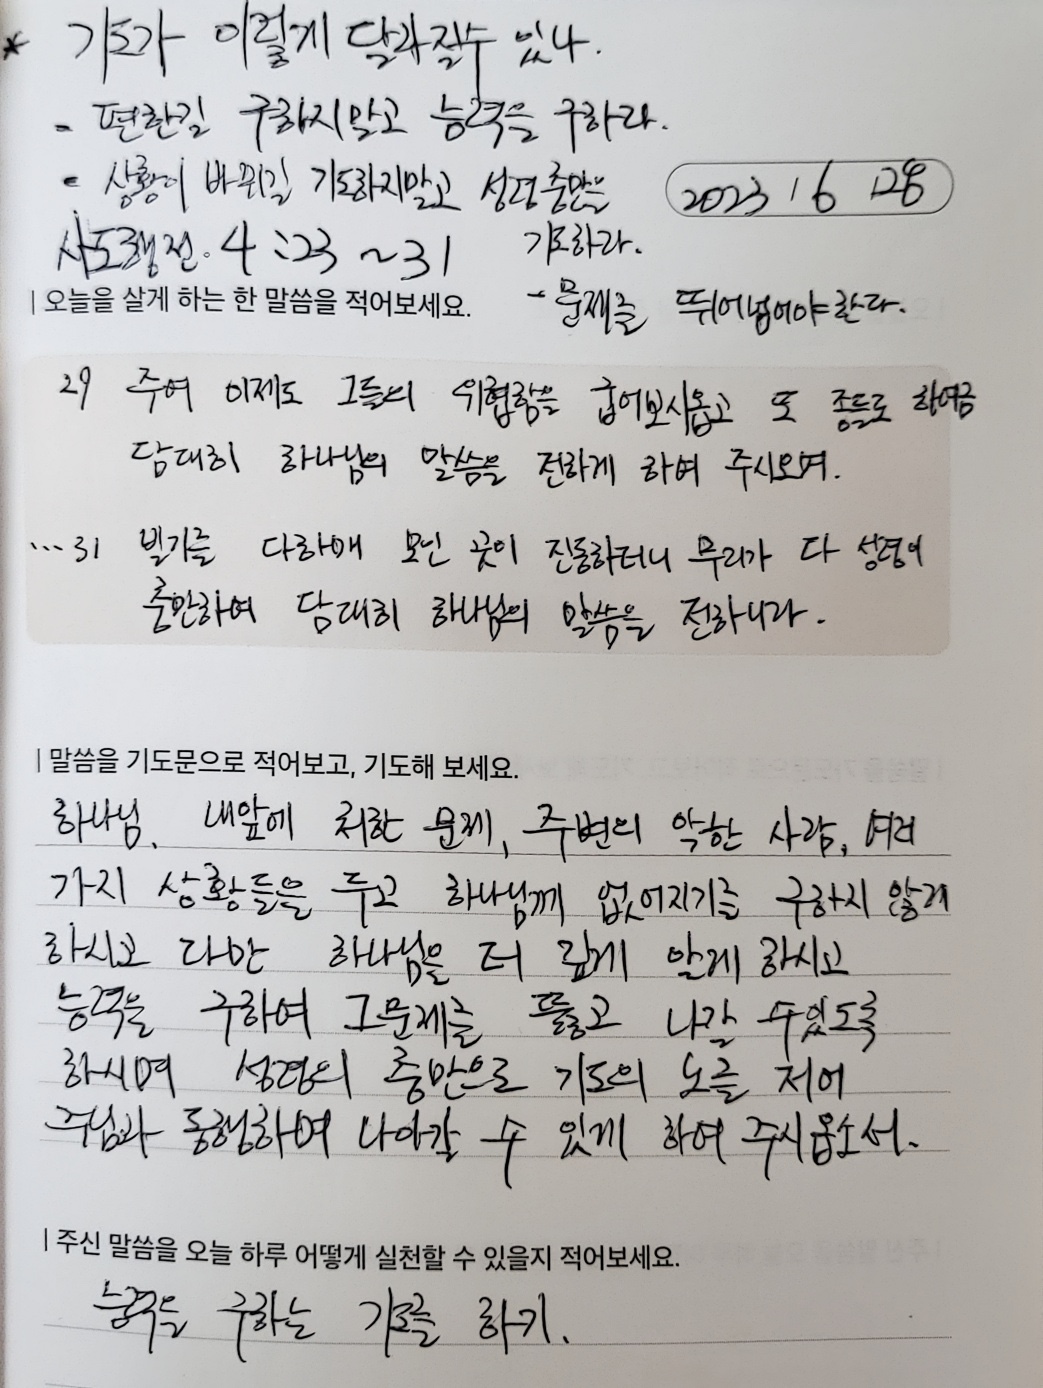 * 기도가 이렇게 달라질수 있나.
- 편한길 구하지말고 능력을 구하라.
- 상황이 바뀌길 기도하지말고 성령충만을
기도하라.
2023 / 6 / 28
사도행전. 4:23~31
- 문제를 뛰어넘어야한다.
| 오늘을 살게 하는 한 말씀을 적어보세요.
29 주여 이제도 그들의 위협함을 굽어보시옵고 또 종들로 하여금
담대히 하나님의 말씀을 전하게 하여 주시오며.
...31 빌기를 다하매 모인 곳이 진동하더니 무리가 다 성령이
충만하여 담대히 하나님의 말씀을 전하니라.
| 말씀을 기도문으로 적어보고, 기도해 보세요.
하나님, 내앞에 처한 문제, 주변의 악한 사람, 여러
가지 상황들을 두고 하나님께 없어지기를 구하지 않게
하시고 다만 하나님을 더 깊게 알게 하시고
능력을 구하여 그문제를 뚫고 나갈 수있도록
하시며 성령의 충만으로 기도의 노를 저어
주님과 동행하며 나아갈 수 있게 하여 주시옵소서.
| 주신 말씀을 오늘 하루 어떻게 실천할 수 있을지 적어보세요.
능력을 구하는 기도를 하기.